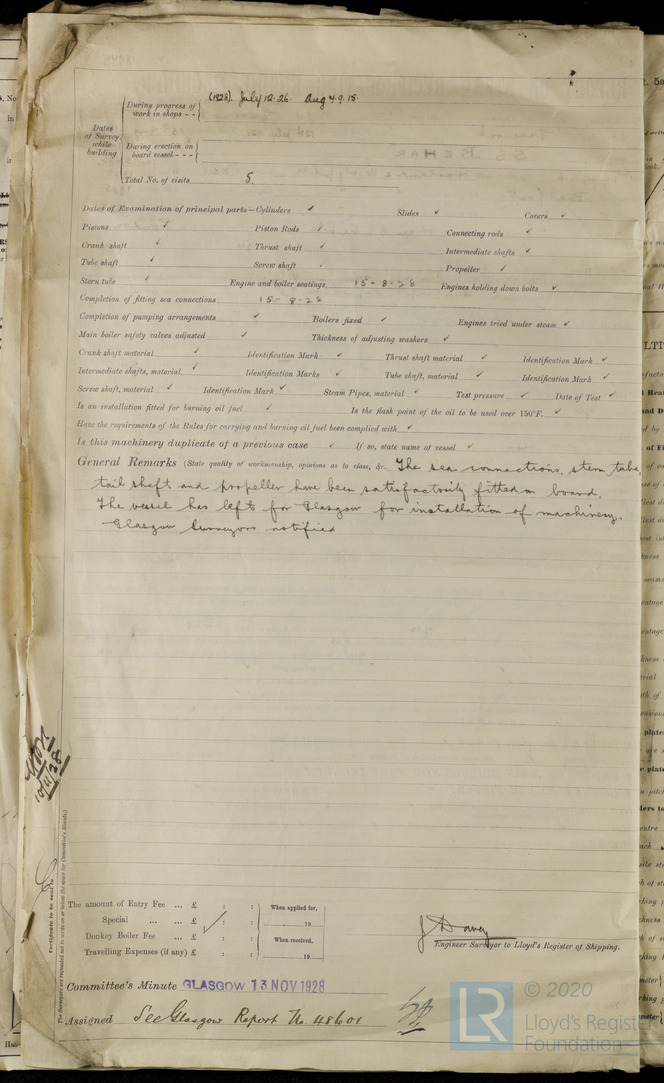 During progress of work in shops - - (1928) July 12. 26. Aug 4. 9. 15.
Dates of Survey while building
During erection on board vessel - - -
Total No. of visits 5.
Dates of Examination of principal parts—Cylinders ✓ Slides ✓ Covers ✓
Pistons ✓ Piston Rods ✓ Connecting rods ✓
Crank shaft ✓ Thrust shaft ✓ Intermediate shafts ✓
Tube shaft ✓ Screw shaft ✓ Propeller ✓
Stern tube ✓ Engine and boiler seatings 15-8-28 Engines holding down bolts ✓
Completion of fitting sea connections 15-8-28
Completion of pumping arrangements ✓ Boilers fixed ✓ Engines tried under steam ✓
Main boiler safety valves adjusted ✓ Thickness of adjusting washers ✓
Crank shaft material ✓ Identification Mark ✓ Thrust shaft material ✓ Identification Mark ✓
Intermediate shafts, material ✓ Identification Marks ✓ Tube shaft, material ✓ Identification Mark ✓
Screw shaft, material ✓ Identification Mark ✓ Steam Pipes, material ✓ Test pressure ✓ Date of Test ✓
Is an installation fitted for burning oil fuel ✓ Is the flash point of the oil to be used over 150°F. ✓
Have the requirements of the Rules for carrying and burning oil fuel been complied with ✓
Is this machinery duplicate of a previous case ✓ If so, state name of vessel ✓
General Remarks (State quality of workmanship, opinions as to class, &c. The sea connections, stern tube,
tail shaft and propeller have been satisfactorily fitted on board.
The vessel has left for Glasgow for installation of machinery.
Glasgow Surveyors notified
10/11/28
Certificate to be sent to
The Surveyors are requested not to write on or below the space for Committee's Minute.
The amount of Entry Fee ... £ : :
Special ... ... £ : :
Donkey Boiler Fee ... £ : :
Travelling Expenses (if any) £ : :
When applied for,
19
When received,
19
J Davey
Engineer Surveyor to Lloyd's Register of Shipping.
Committee's Minute GLASGOW 13 NOV 1928
Assigned See Glasgow Report No 48601
LR
© 2020
Lloyd's Register
Foundation